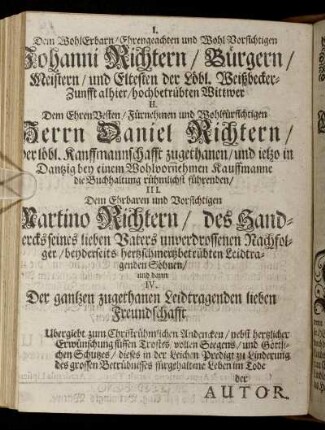 I.
Dem WohlErbarn/Ehrengeachten und Wohl Vorsichtigen
Johanni Richtern/Bürgern/
Meistern/und Eltesten der Löbl. Weißbecker-
Zunfft alhier/hochbetrübten Wittwer
II.
Dem EhrenVesten/Fürnehmen und Wohlfürsichtigen
Herrn Daniel Richtern/
der löbl. Kauffmannschafft zugethanen/und ietzo in
Dantzig bey einem Wohlvornehmen Kauffmanne
die Buchhaltung rühmlichst führenden/
III.
Dem Ehrbaren und Vorsichtigen
Martino Richtern/des Hand-
wercks seines lieben Vaters unverdrossenen Nachfol-
ger/beyderseits hertzschmertzbetrübten Leidtra-
genden Söhnen/
und dann
IV.
Der gantzen zugethanen Leidtragenden lieben
Freundschafft
Ubergiebt zum Christrühmlichen Andencken/nebst hertzlicher
Erwünschung süssen Trostes, vollen Seegens/und Göttli-
chen Schutzes/dieses in der Leichen Predigt zu Linderung
des grossen Betrübnisses fürgehaltene Leben im Tode
der
AUTOR.